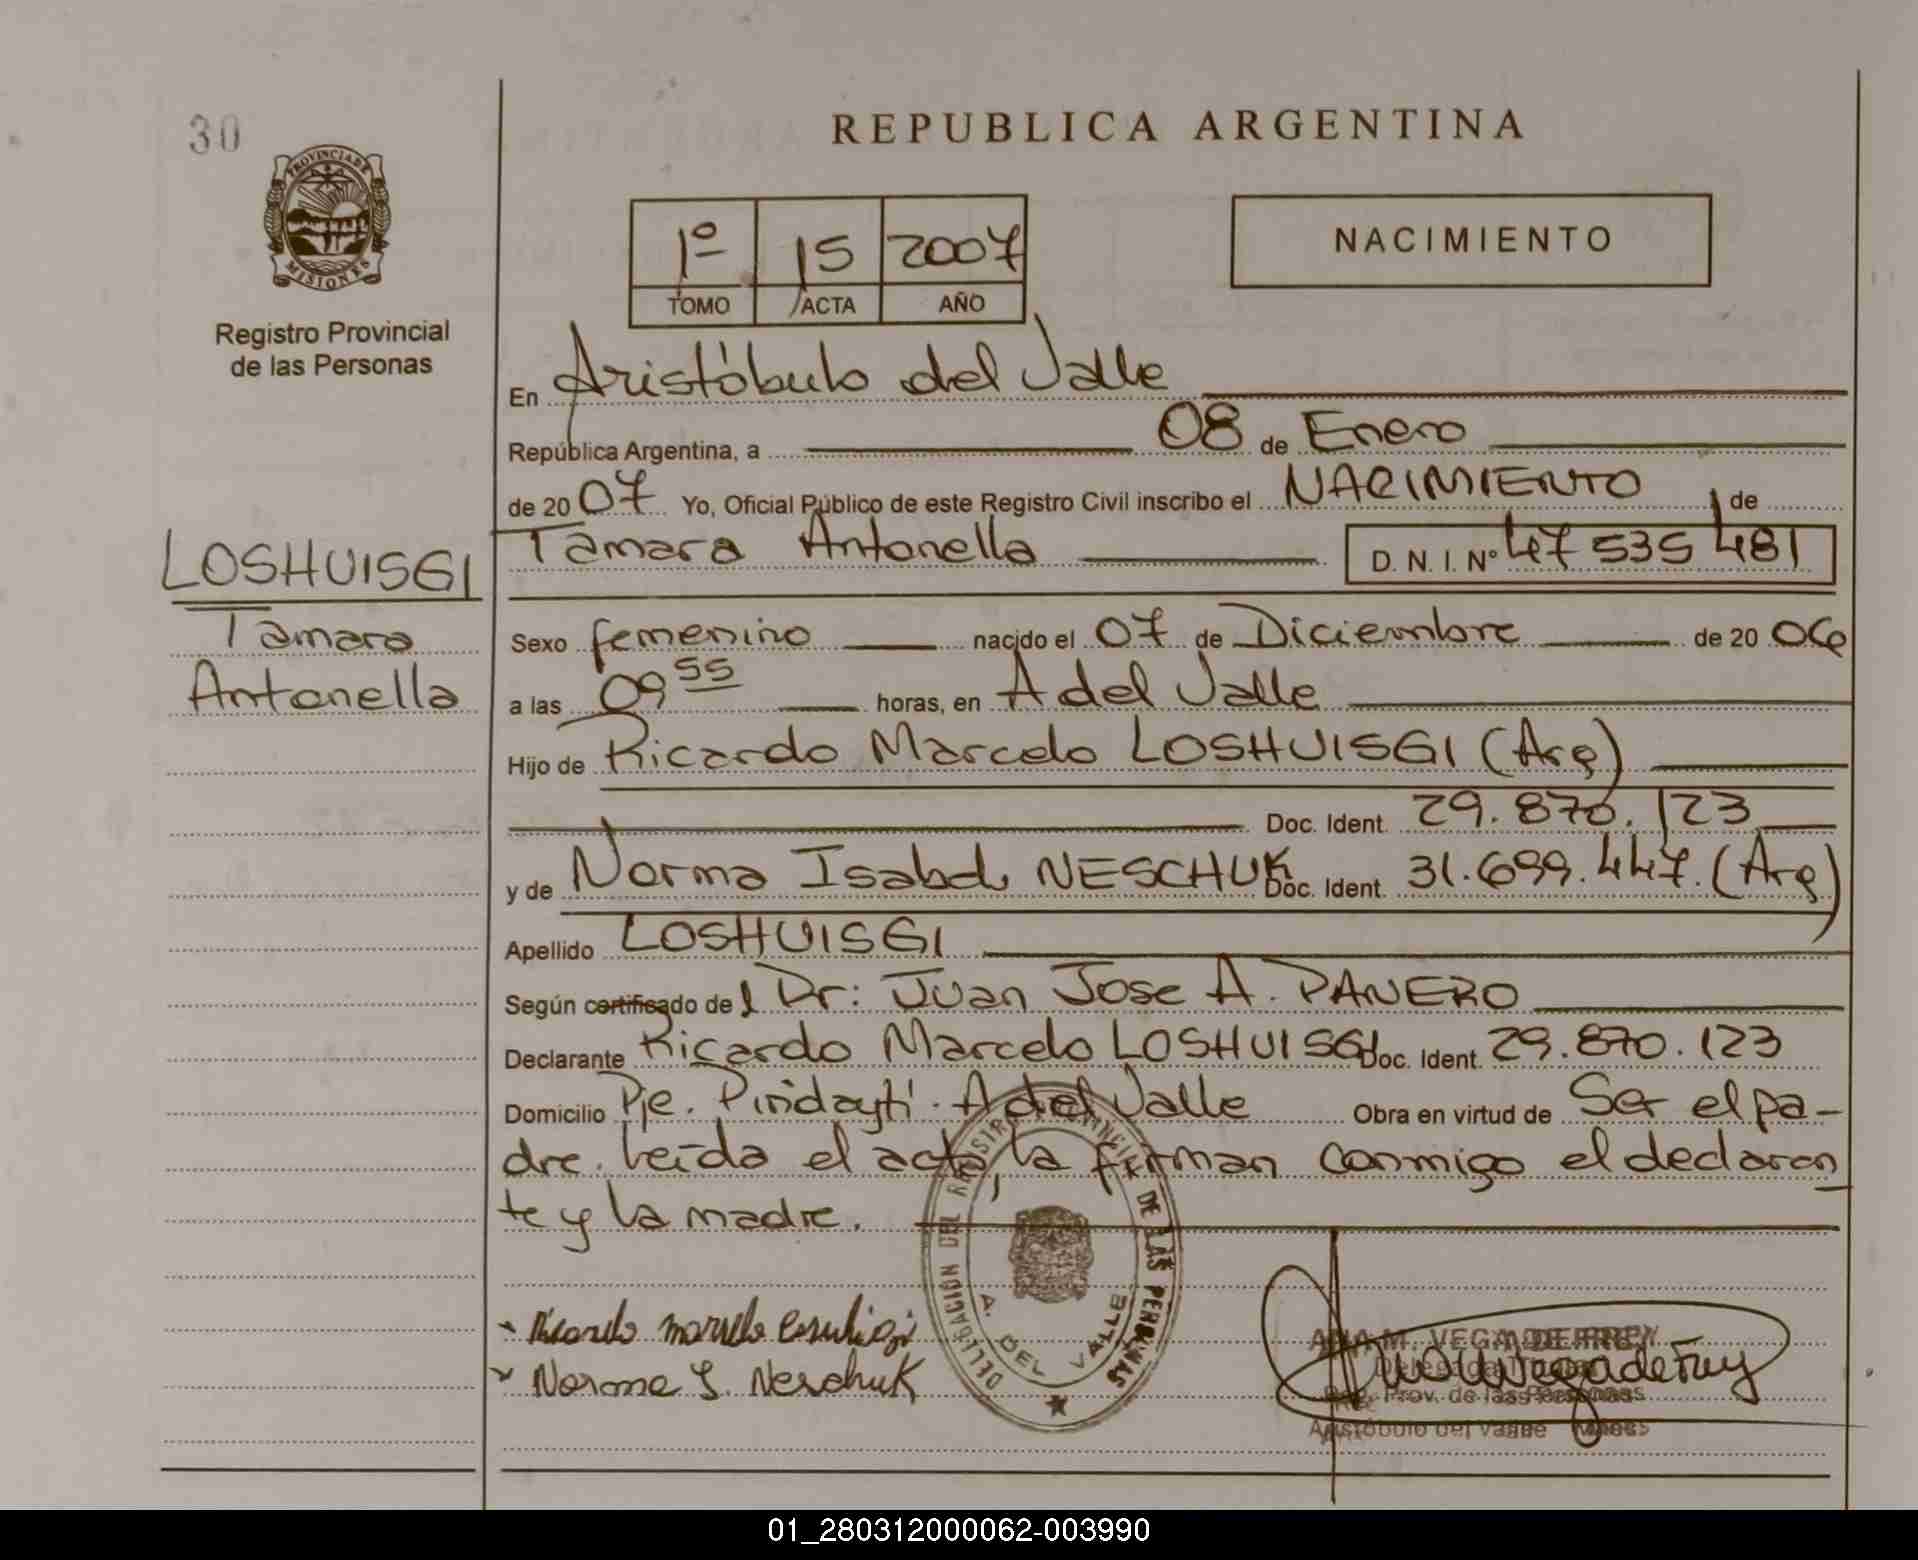 30
PROVINCIA DE
MISIONES
Registro Provincial
de las Personas
REPUBLICA ARGENTINA
1º 15 2007
TOMO ACTA AÑO
NACIMIENTO
En Aristóbulo del Valle
República Argentina, a 08 de Enero
de 2007 Yo, Oficial Público de este Registro Civil inscribo el NACIMIENTO de
Tamara Antonella D. N. I. Nº 47 535 481
LOSHUISGI
Tamara
Antonella
Sexo femenino nacido el 07 de Diciembre de 2006
a las 09 55 horas, en A del Valle
Hijo de Ricardo Marcelo LOSHUISGI (Arg)
Doc. Ident. 29.870.123
y de Norma Isabel NESCHUK Doc. Ident. 31.699.447. (Arg)
Apellido LOSHUISGI
Según certificado del Dr: Juan Jose A. PANERO
Declarante Ricardo Marcelo LOSHUISGI Doc. Ident. 29.870.123
Domicilio Pje. Pindayti. A del Valle Obra en virtud de Ser el pa-
dre. Leída el acta, la firman conmigo el declaran
te y la madre.
DELEGACION DEL REGISTRO PROVINCIAL DE LAS PERSONAS
A. DEL VALLE
Ricardo marcelo
Norma I. Neschuk
ANA M. VEGA DE FREY
Prov. de las Personas
Aristóbulo del Valle
01_280312000062-003990